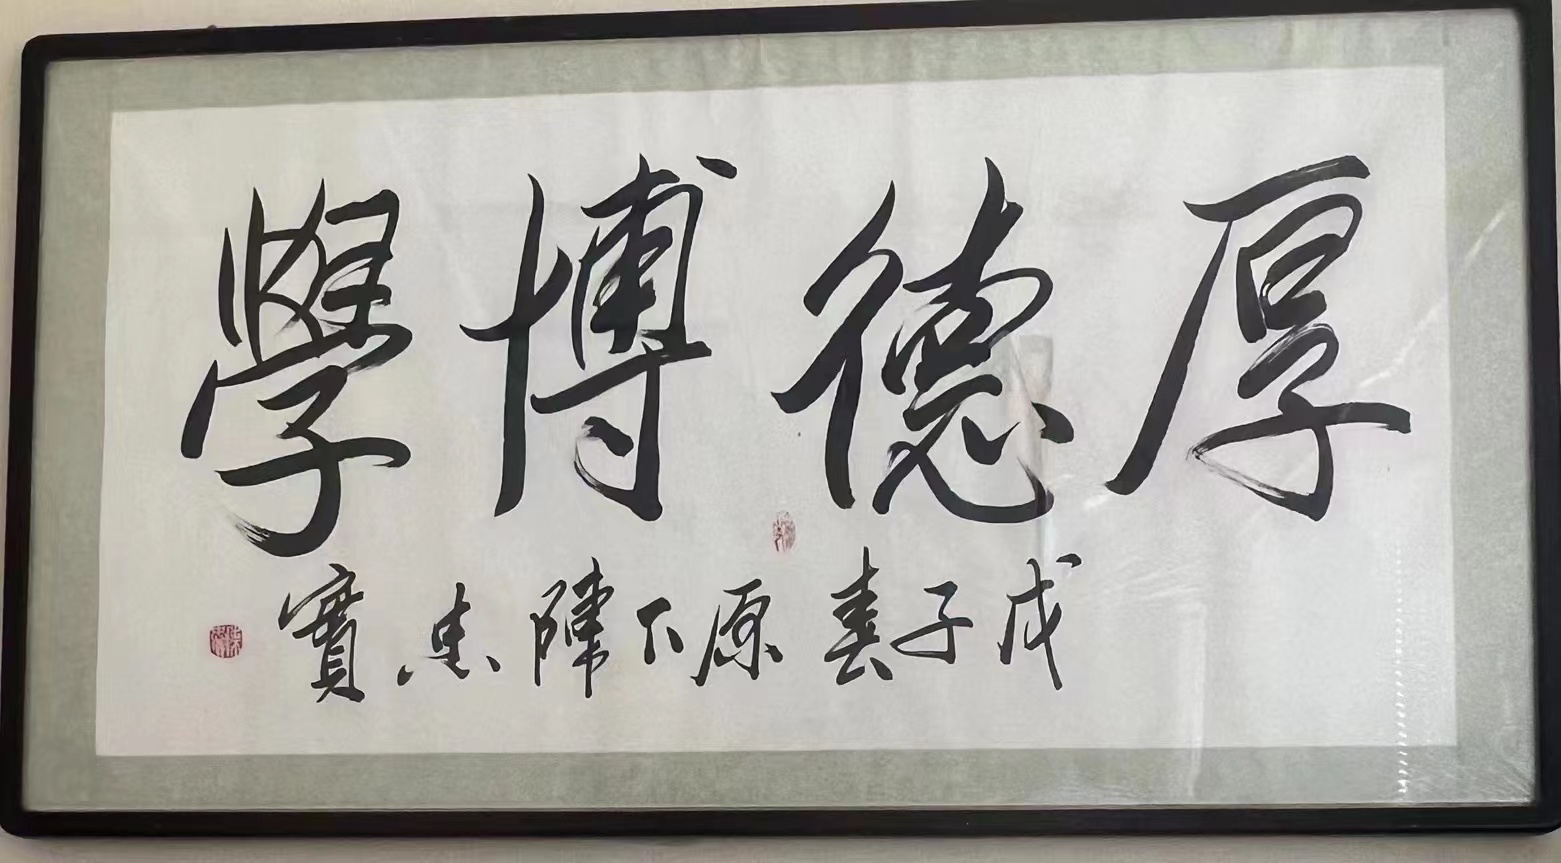 厚德博學
戊子春原下陳忠實